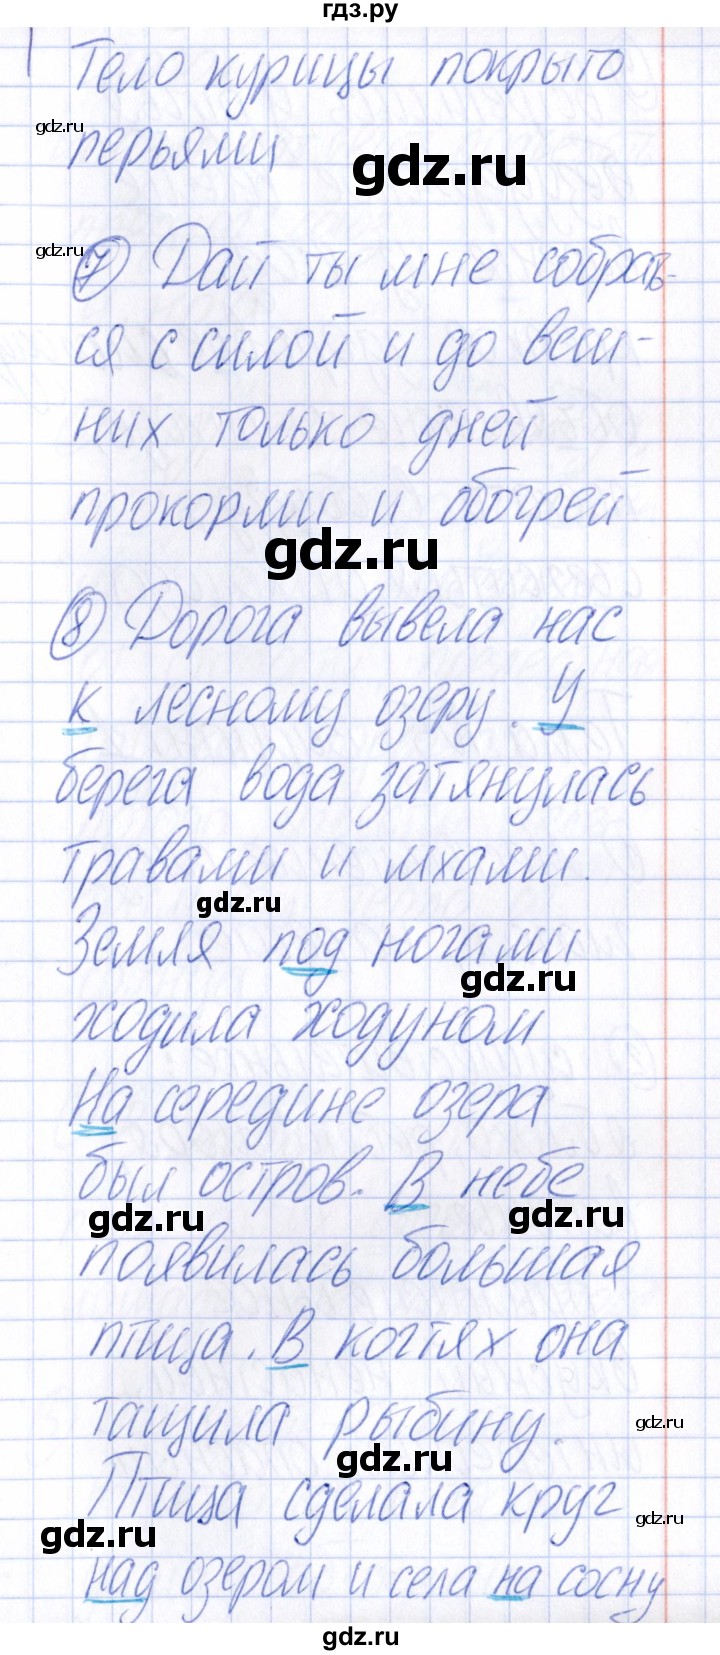 гдз.ру
Тело курицы покрыто
gdz.ru
перьями
gdz.ru
gdz.ru
7 Дай ты мне собрать-
ся с силой и до веш-
них только дней
прокорми и обогрей
gdz.ru
8 Дорога вывела нас
к лесному озеру. У
берега вода затянулась
травами и мхами.
gdz.ru
Земля под ногами
gdz.ru
ходила ходуном
На середине озера
был остров. В небе
gdz.ru
gdz.ru
появилась большая
птица. В когтях она
тащила рыбину.
gdz.ru
gdz.ru
Птица сделала круг
gdz.ru
gdz.ru
над озером и села на сосну
gdz.ru